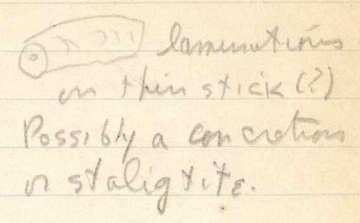 laminations
on thin stick (?)
Possibly a concretion
or staligtite.